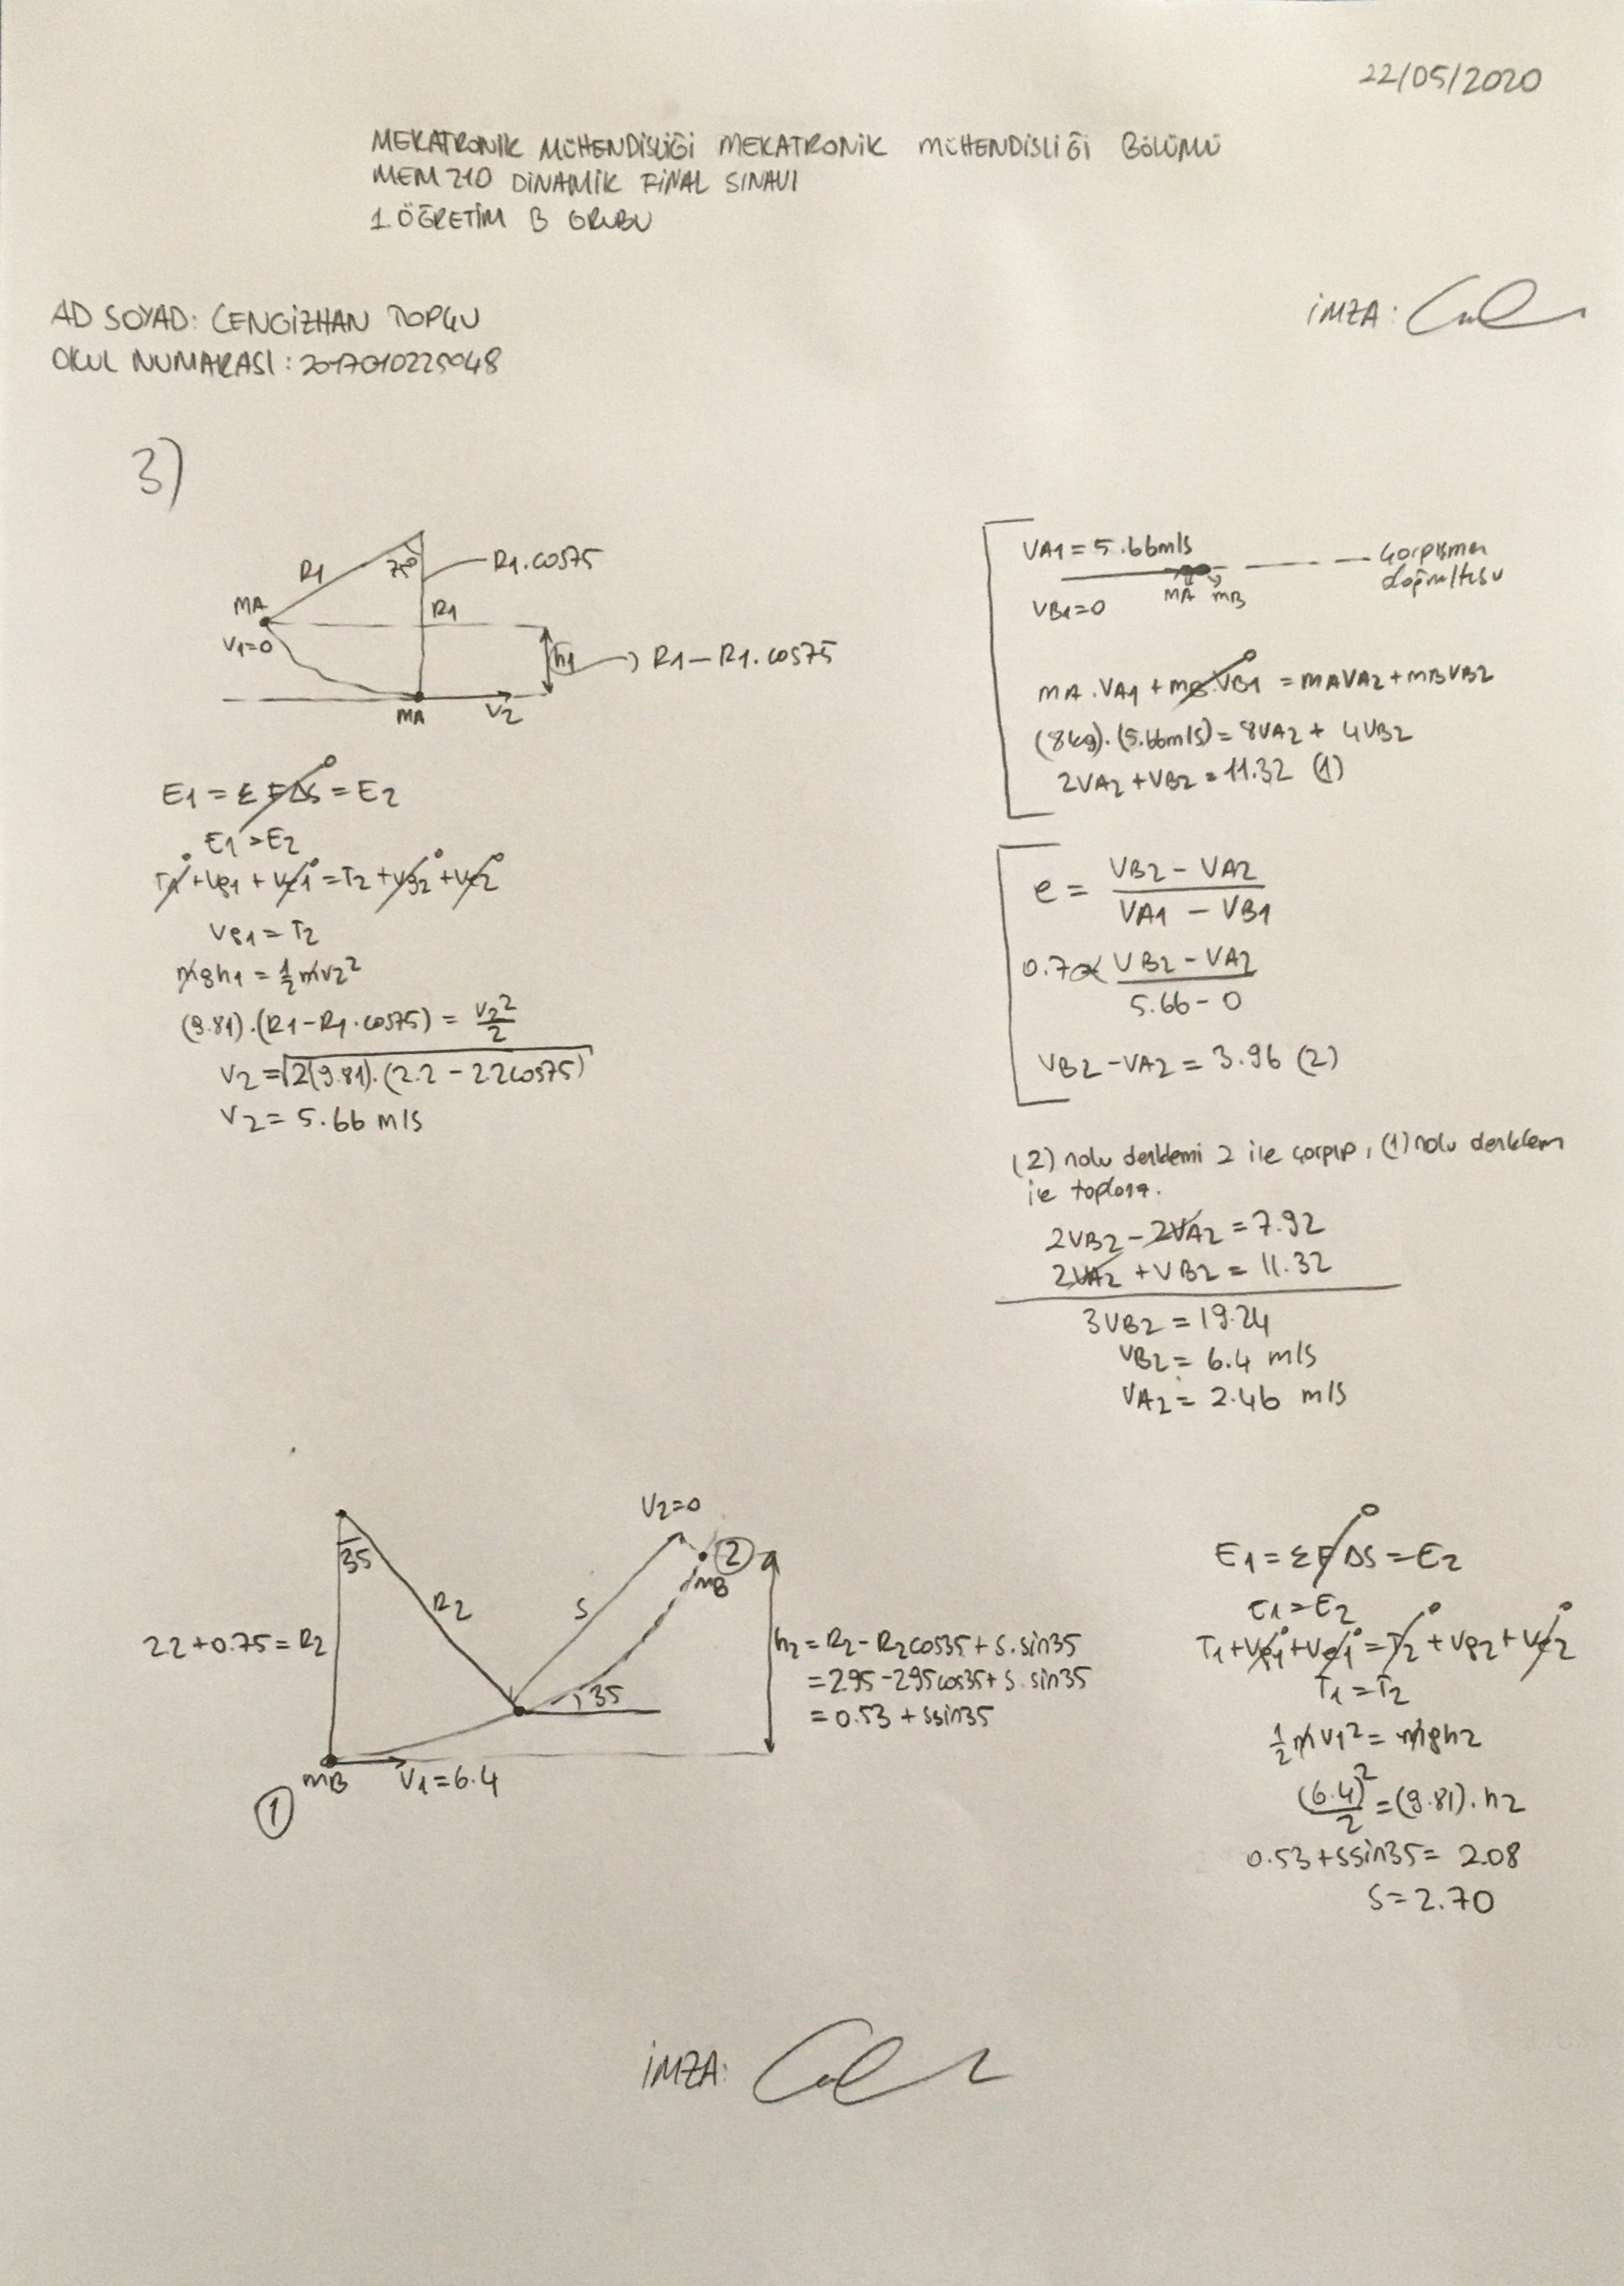 22/05/2020
MEKATRONİK MÜHENDİSLİĞİ MEKATRONİK MÜHENDİSLİĞİ BÖLÜMÜ
MEM 210 DİNAMİK FİNAL SINAVI
1.ÖĞRETİM B GRUBU
AD SOYAD: CENGİZHAN TOPÇU
İMZA:
OKUL NUMARASI: 2017010225048
3)
R1
75°
R1.cos75
MA
R1
V1=0
h1
R1-R1.cos75
MA
V2
E1 = Σ FΔS = E2
0
E1 = E2
T1 + Vg1 + Ve1 = T2 + Vg2 + Ve2
Vg1 = T2
mgh1 = 1/2 mv2²
(9.81).(R1-R1.cos75) = V2²/2
V2 = √2(9.81).(2.2 - 2.2cos75)
V2 = 5.66 m/s
VA1 = 5.66m/s
Çarpışma
doğrultusu
MA mB
VB1=0
mA.VA1 + mB.VB1 = mAVA2 + mBVB2
(8kg).(5.66m/s) = 8VA2 + 4VB2
2VA2 + VB2 = 11.32 (1)
e = VB2 - VA2 / VA1 - VB1
0.7 = VB2 - VA2 / 5.66 - 0
VB2 - VA2 = 3.96 (2)
(2) nolu denklemi 2 ile çarpıp, (1) nolu denklem
ile topla.
2VB2 - 2VA2 = 7.92
2VA2 + VB2 = 11.32
3VB2 = 19.24
VB2 = 6.4 m/s
VA2 = 2.46 m/s
V2=0
35
2
mB
R2
S
2.2+0.75=R2
h2 = R2 - R2cos35 + S.sin35
= 2.95 - 2.95cos35 + S.sin35
= 0.53 + Ssin35
35
mB
V1=6.4
1
E1 = Σ F ΔS = E2
0
E1 = E2
T1 + Vg1 + Ve1 = T2 + Vg2 + Ve2
T1 = T2
1/2 mv1² = mgh2
(6.4)²/2 = (9.81).h2
0.53 + Ssin35 = 2.08
S = 2.70
İMZA: